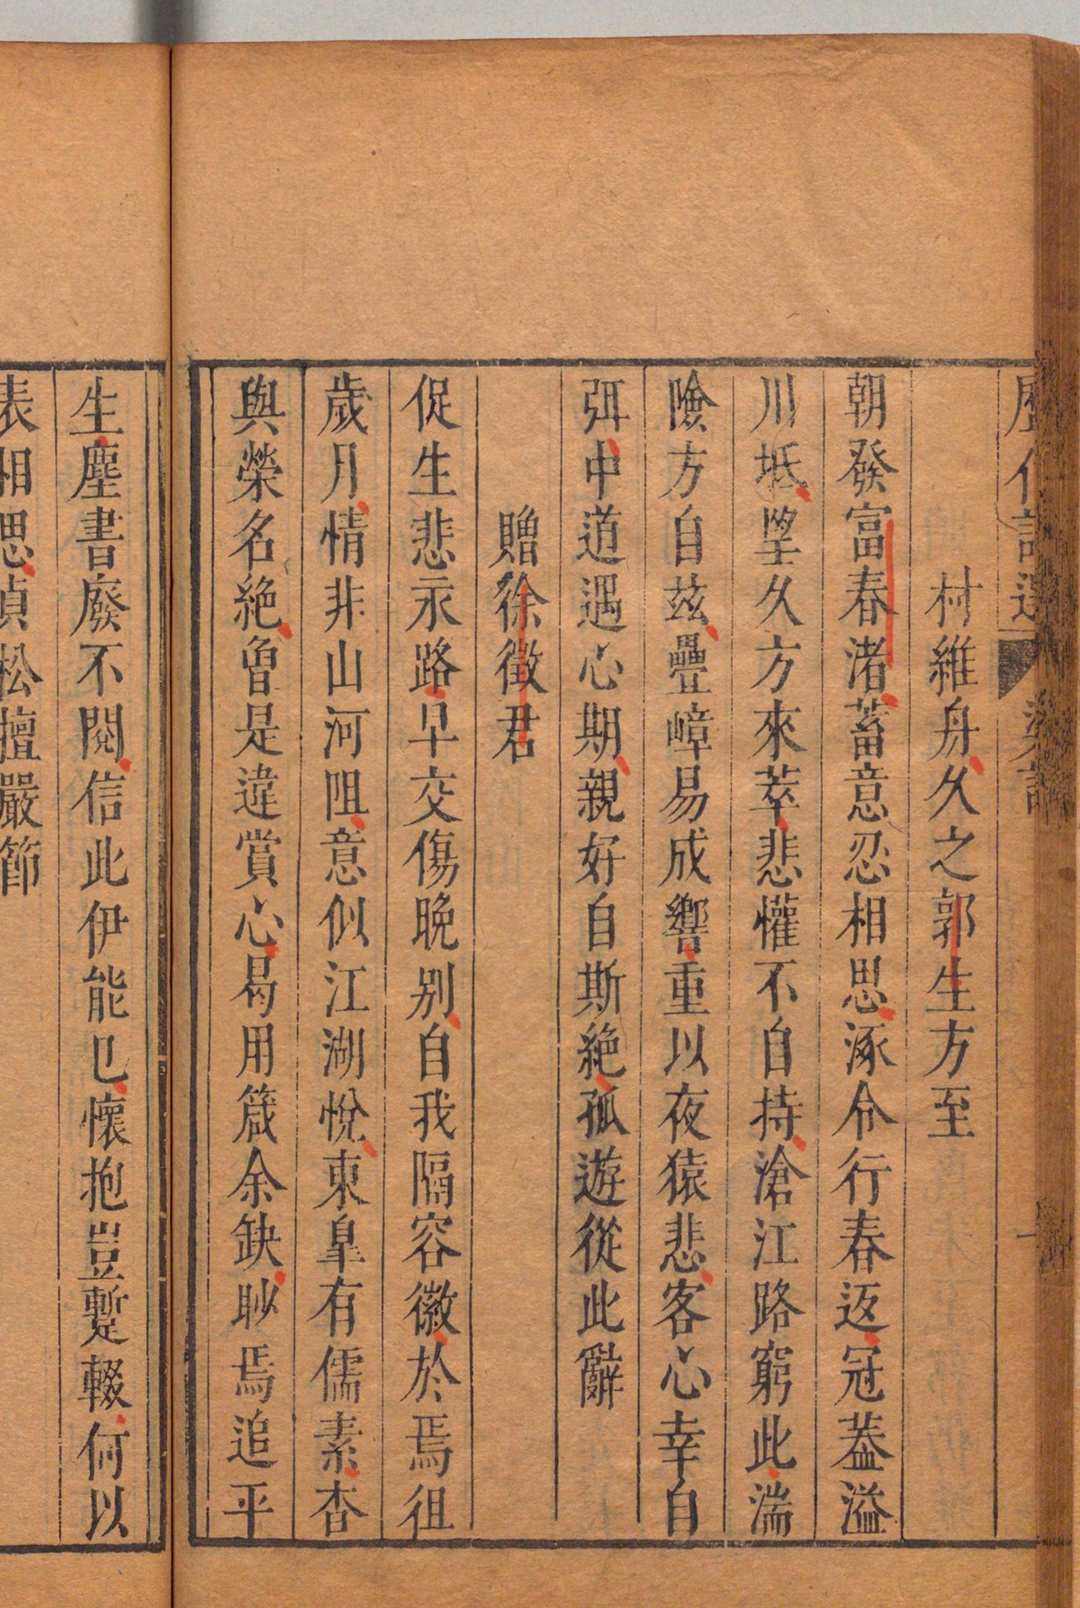 歷代詩選 梁詩
村維舟久之郭生方至
朝發富春渚蓄意忍相思涿令行春返冠葢溢
川坻望久方來萃悲懽不自持滄江路窮此湍
險方自茲疊嶂易成響重以夜猿悲客心幸自
弭中道遇心期親好自斯絶孤遊從此辭
贈徐徵君
促生悲永路早交傷晚别自我隔容徽於焉徂
歲月情非山河阻意似江湖悅東皐有儒素杳
與榮名絶曾是違賞心曷用箴余缺眇焉追平
生塵書廢不閱信此伊能已懷抱豈暫輟何以
表相思貞松擅嚴節